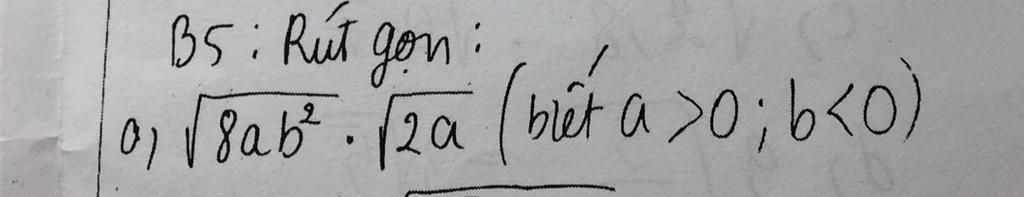 B5: Rút gọn:
a) √8ab² . √2a (biết a > 0; b < 0)